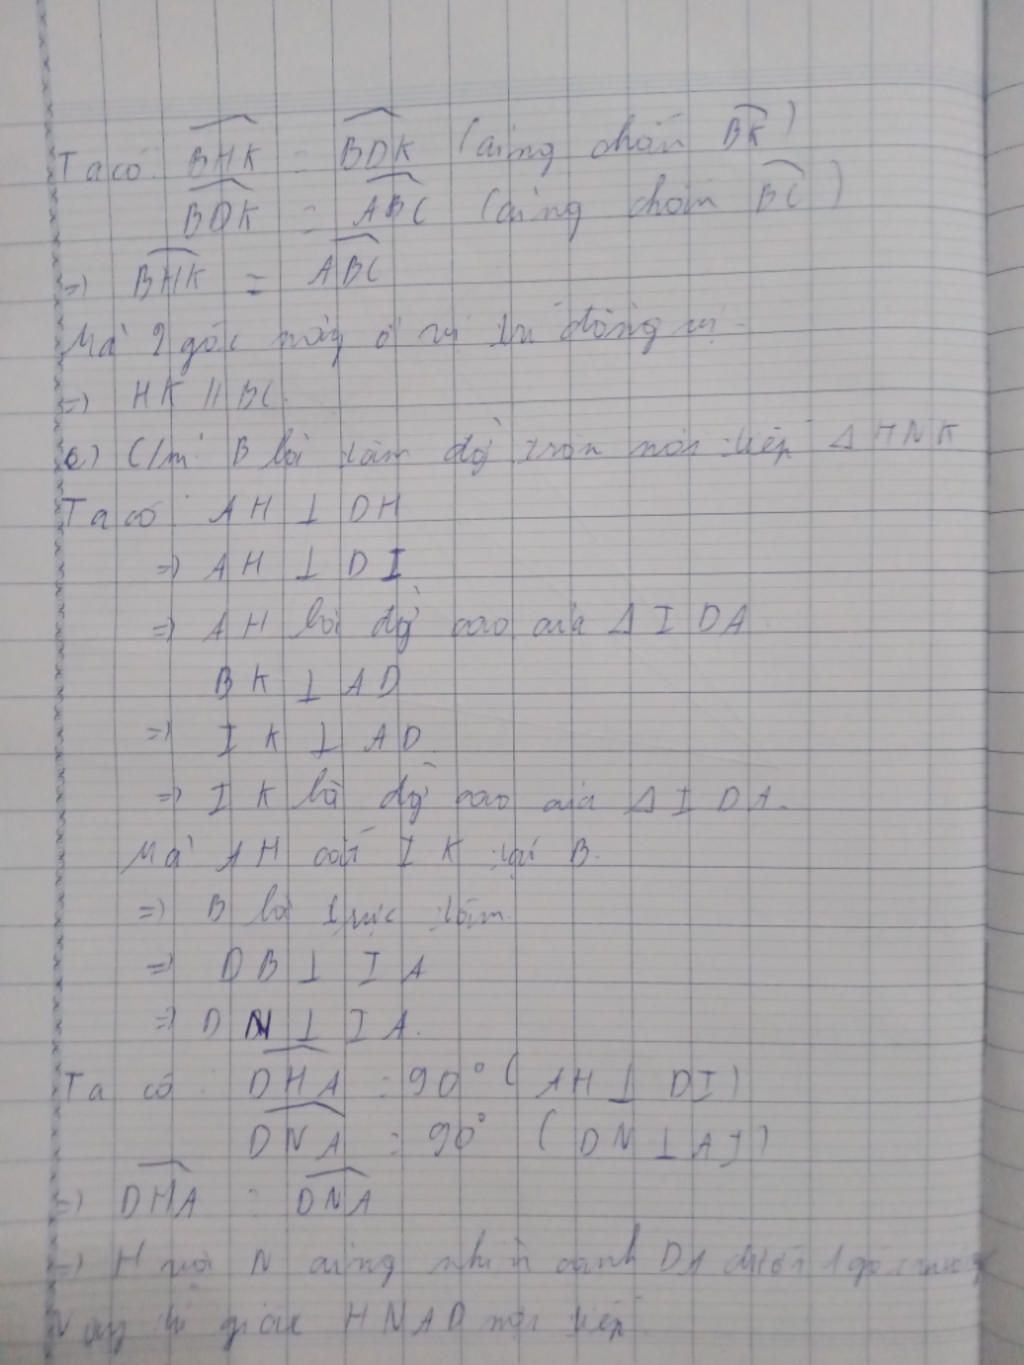 Ta có: BHK = BDK (cùng chắn BK)
BDK = ABC (cùng chắn BC)
=> BHK = ABC
Mà 2 góc này ở vị trí đồng vị.
=> HK // BC.
c) C/m: B là tâm đg tròn nội tiếp Δ HNK
Ta có: AH ⊥ DH
=> AH ⊥ DI
=> AH là đg cao của Δ IDA.
BK ⊥ AD
=> IK ⊥ AD.
=> IK là đg cao của Δ IDA.
Mà AH cắt IK tại B.
=> B là trực tâm.
=> DB ⊥ IA
=> DN ⊥ IA.
Ta có: DHA = 90° (AH ⊥ DI)
DNA = 90° (DN ⊥ AI)
=> DHA = DNA
=> H và N cùng nhìn cạnh DA dưới 1 góc vuông
Vậy tứ giác HNAD nội tiếp.